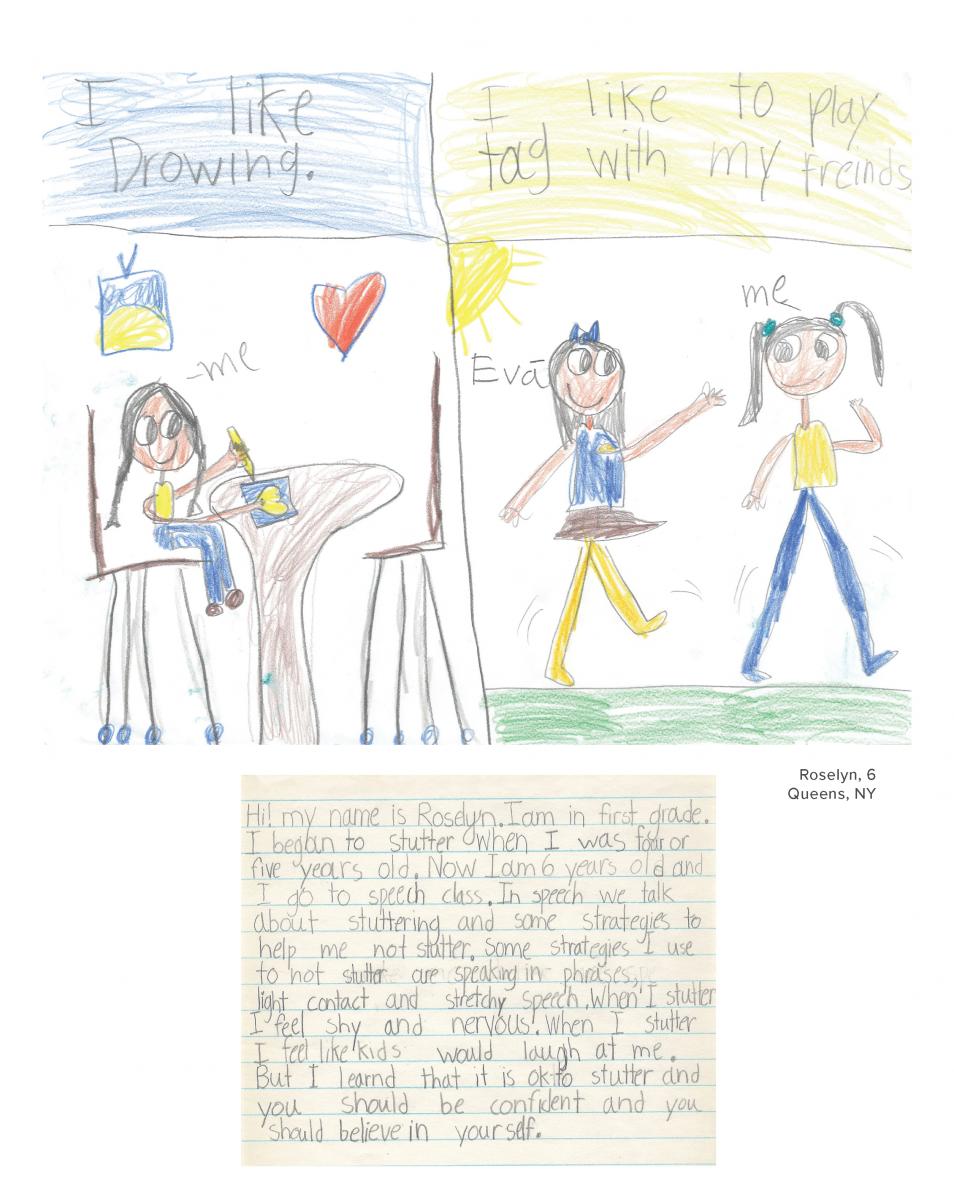 I like
Drowing.
I like to play
tag with my freinds
-me
me
Eva
Roselyn, 6
Queens, NY
Hi! my name is Roselyn. I am in first grade.
I began to stutter when I was four or
five years old. Now I am 6 years old and
I go to speech class. In speech we talk
about stuttering and some strategies to
help me not stutter. Some strategies I use
to not stutter are speaking in phrases,
light contact and stretchy speech. When I stutter
I feel shy and nervous. When I stutter
I feel like kids would laugh at me.
But I learnd that it is ok to stutter and
you should be confident and you
should believe in yourself.